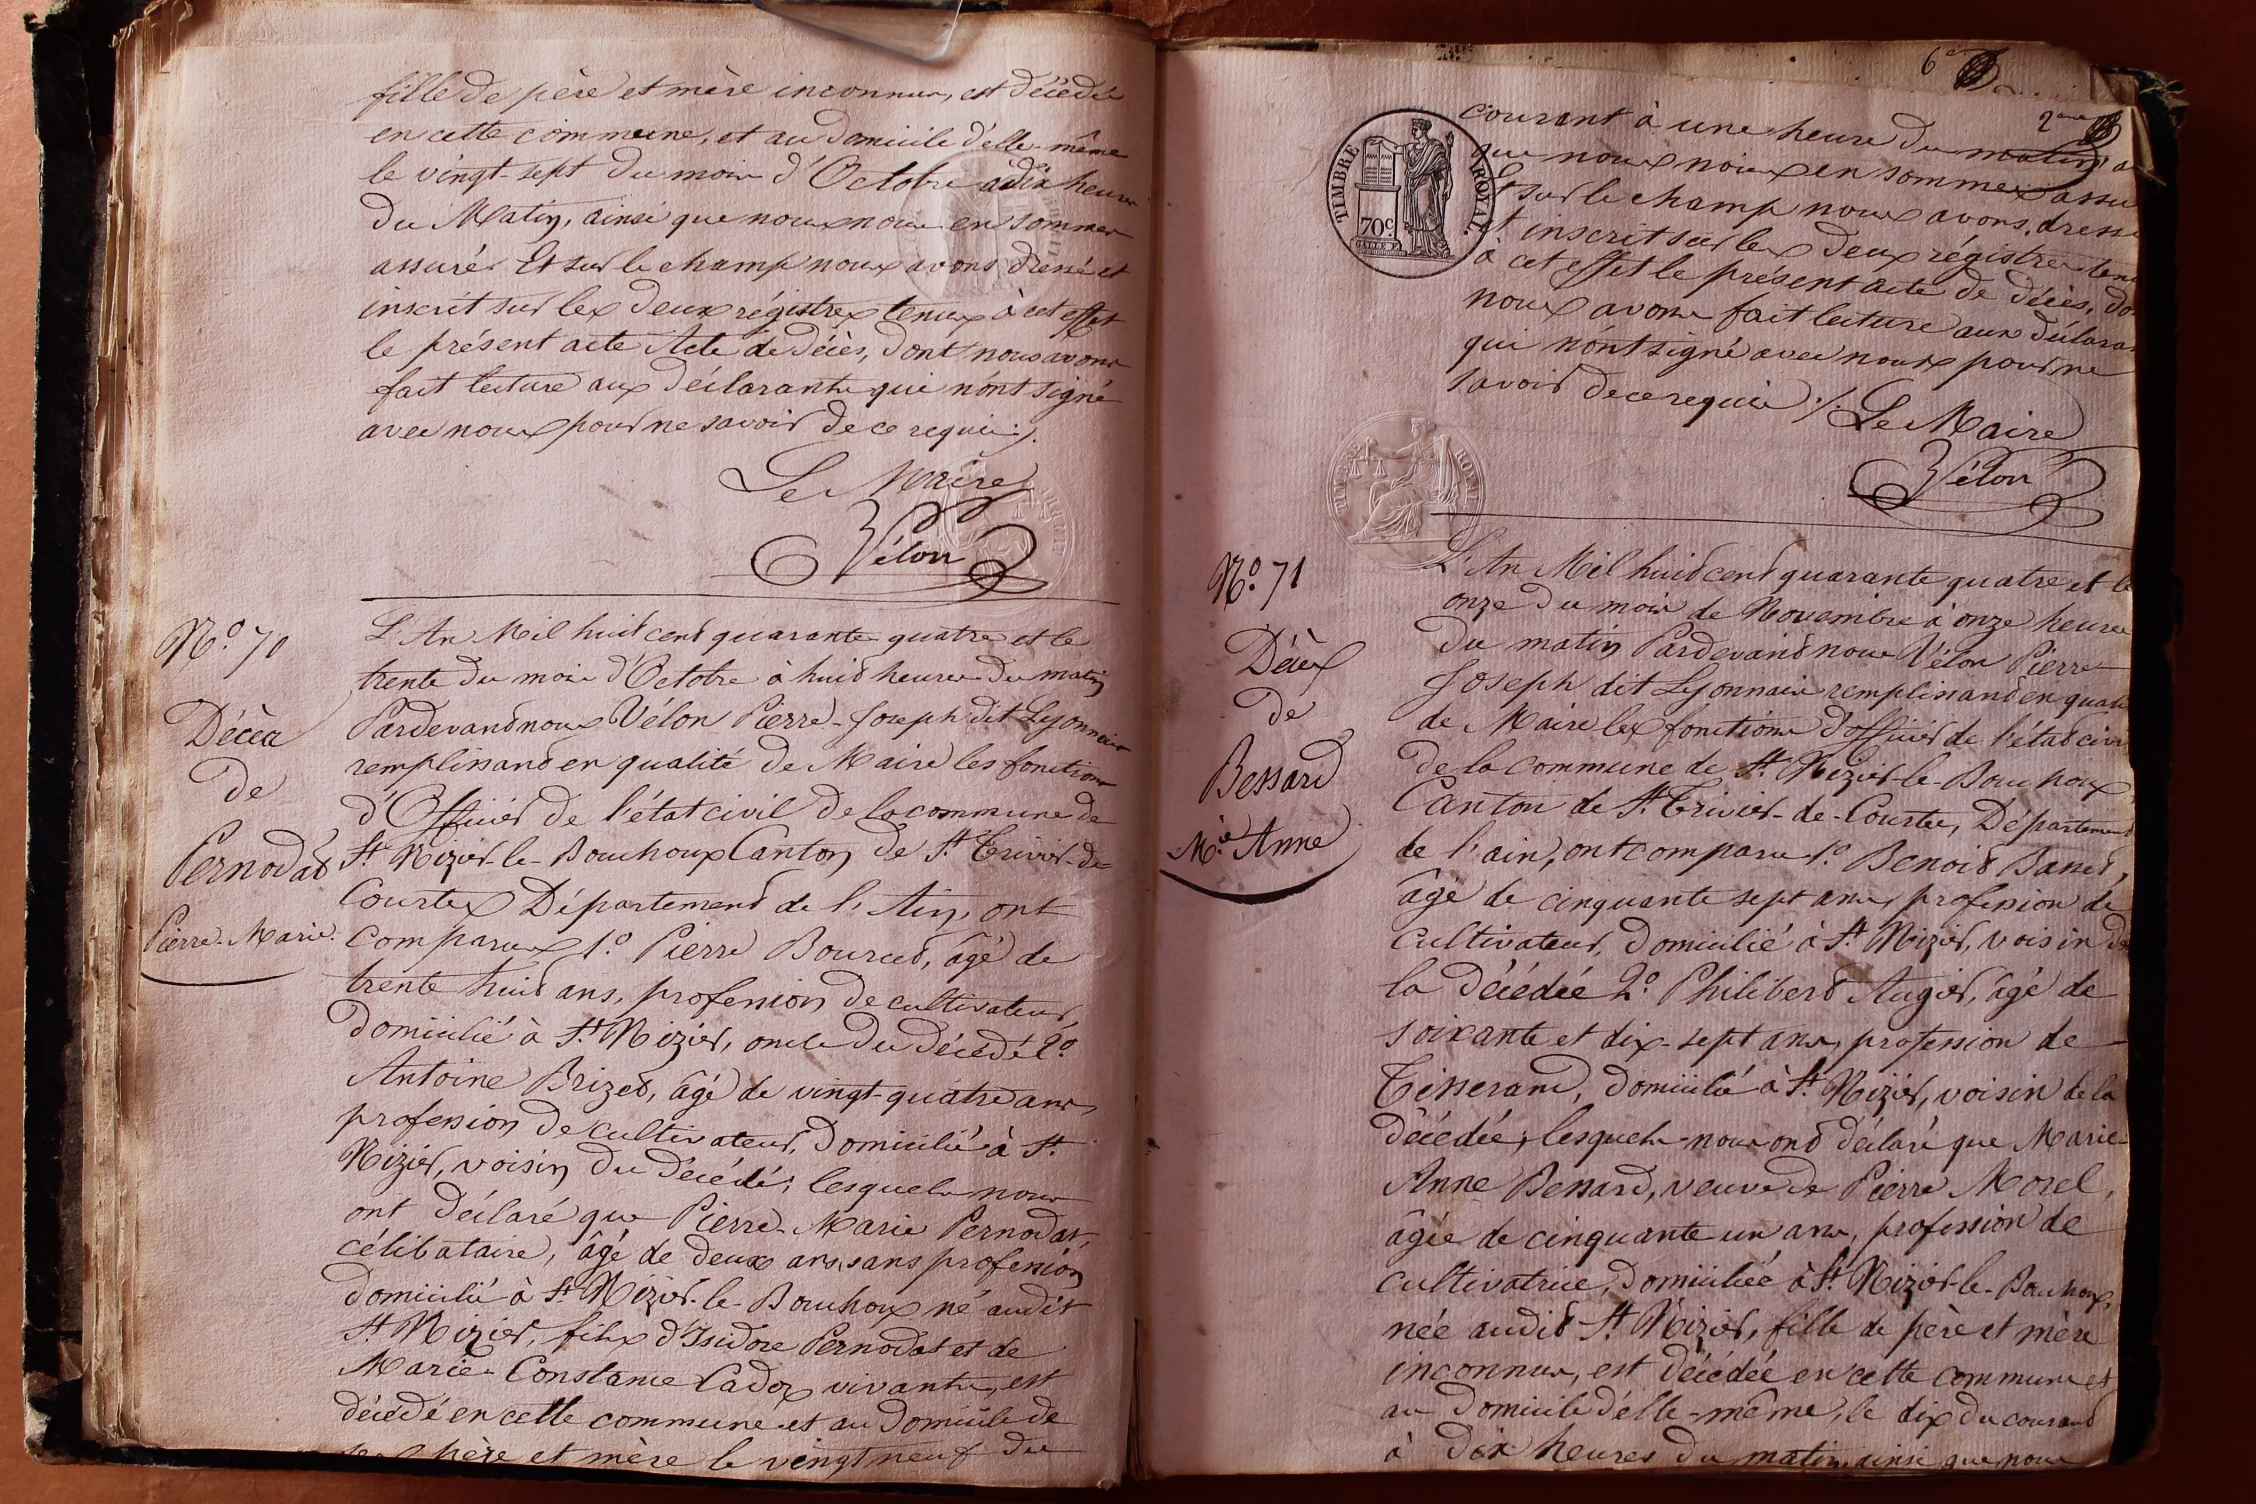 fille de père et mère inconnus, est décédée
en cette commune, et au domicile d'elle-même
le vingt-sept du mois d'Octobre à dix heures
du Matin, ainsi que nous nous en sommes
assurés Et sur le champ nous avons dressé et
inscrit sur les deux régistres tenus à cet effet
le présent acte Acte de décès, dont nous avons
fait lecture aux déclarants qui n'ont signé
avec nous pour ne savoir de ce requis ./.
Le Maire
Vélon
N.o 70
Décès
de
Pernodat
Pierre-Marie.
L'An Mil huit cent quarante quatre et le
trente du mois d'Octobre à huit heures du matin
Pardevant nous Vélon Pierre-Joseph dit Lyonnais
remplissant en qualité de Maire les fonctions
d'Officier de l'état civil de la commune de
St Nizier-le-Bouchoux Canton de St Trivier-de-
Courtes Département de l'Ain, ont
comparus 1.o Pierre Bourcet, âgé de
trente huit ans, profession de cultivateur
domicilié à St Nizier, oncle du décédé 2.o
Antoine Brizet, âgé de vingt-quatre ans,
profession de cultivateur, domicilié à St
Nizier, voisin du décédé; lesquels nous
ont déclaré que Pierre-Marie Pernodat,
célibataire, âgé de deux ans, sans profession
domicilié à St Nizier-le-Bouchoux né audit
St Nizier, fils d'Isidore Pernodat et de
Marie-Constance Cadoz vivants, est
décédé en cette commune et au domicile de
ses père et mère le vingt neuf du
6e
2me
TIMBRE ROYAL.
70c.
courant à une heure du matin
que nous nous en sommes
Et sur le champ nous avons
et inscrit sur les deux régistres
à cet effet le présent acte de décès,
nous avons fait lecture aux
qui n'ont signé avec nous pour ne
savoir de ce requis ./. Le Maire
Vélon
N.o 71
Décès
de
Bessard
M.ie Anne
L'An Mil huit cent quarante quatre et le
onze du mois de Novembre à onze heures
du matin Pardevant nous Vélon Pierre
Joseph dit Lyonnais remplissant en
de Maire les fonctions d'officier de l'état
de la commune de St Nizier-le-Bouchoux
Canton de St Trivier-de-Courtes, Département
de l'ain, ont comparu 1.o Benoit
âgé de cinquante sept ans, profession de
cultivateur, domicilié à St Nizier, voisin de
la décédée 2.o Philibert Augier, âgé de
soixante et dix-sept ans, profession de
Tisserand, domicilié à St Nizier, voisin de la
décédée, lesquels nous ont déclaré que Marie-
Anne Bessard, veuve de Pierre Morel,
âgée de cinquante un ans, profession de
cultivatrice, domiciliée à St Nizier-le-Bouchoux,
née audit St Nizier, fille de père et mère
inconnus, est décédée en cette commune et
au domicile d'elle-même, le dix du courant
à dix heures du matin, ainsi que nous